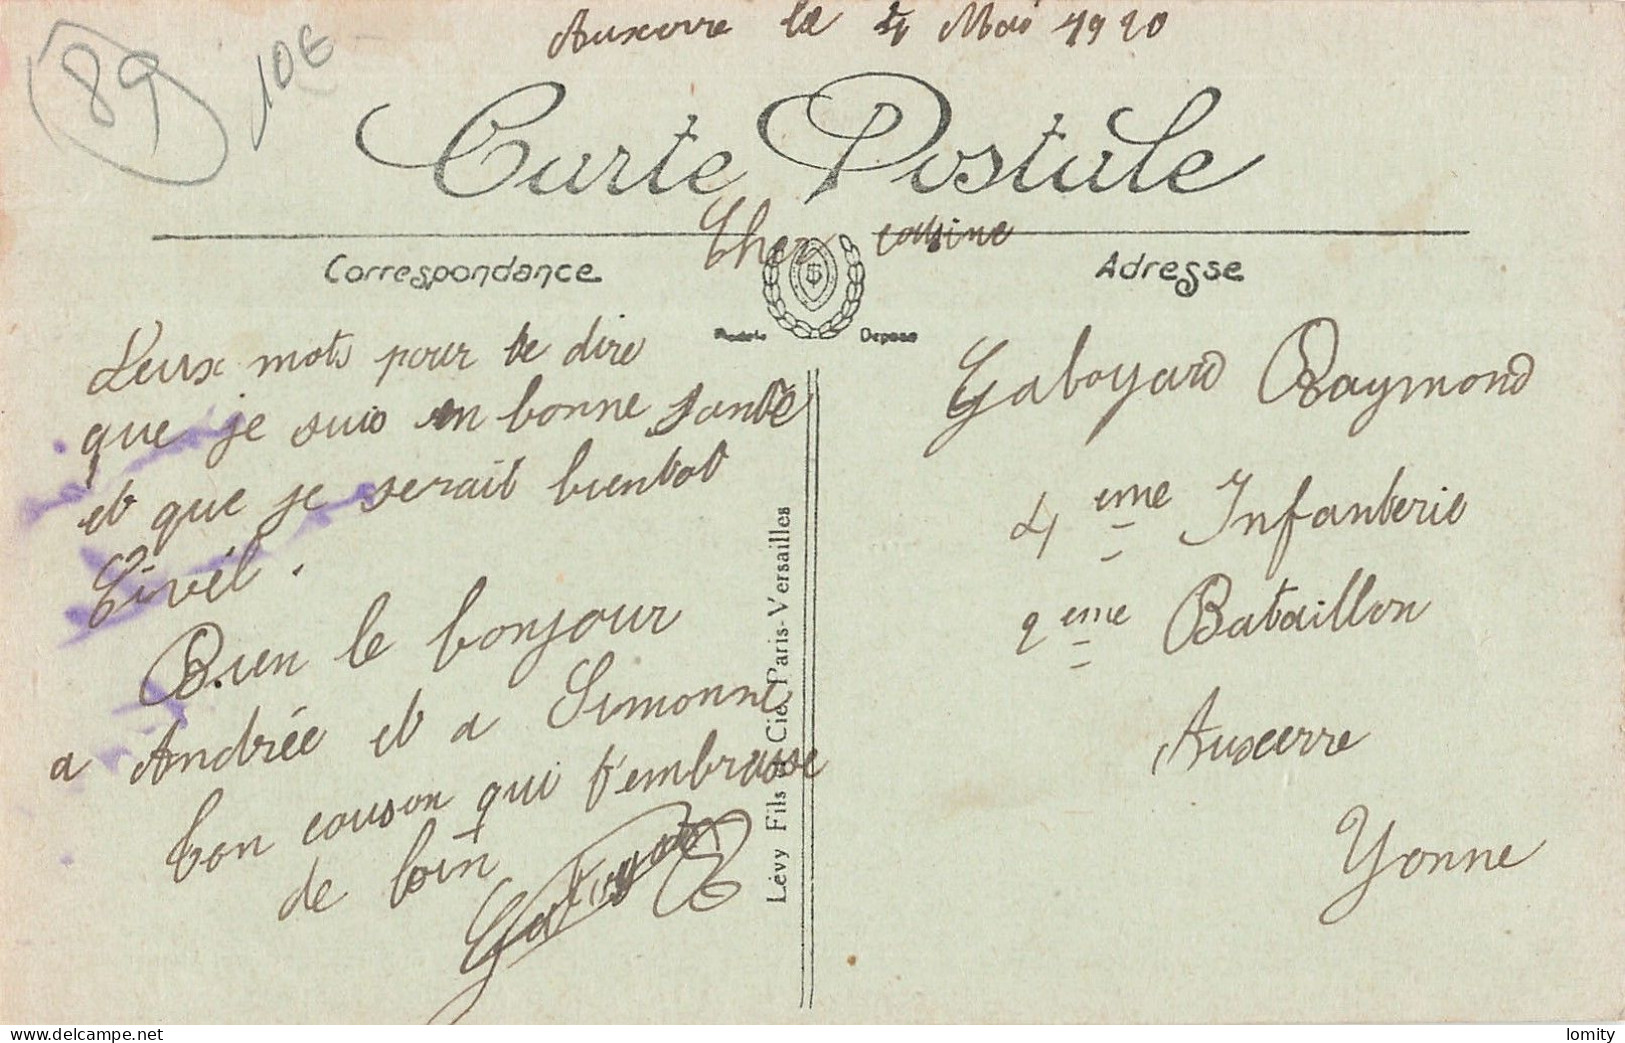 Auxerre le 4 Mai 1920
89
10€
Carte Postale
Cher cousine
Correspondance
Adresse
Modele Depose
Deux mots pour te dire
que je suis en bonne santé
et que je serait bientot
Civil.
Bien le bonjour
a Andrée et a Simonne
bon couson qui t'embrasse
de loin
Gaboyard
Gaboyard Raymond
4 eme Infanterie
2 eme Bataillon
Auxerre
Yonne
Lévy Fils & Cie, Paris-Versailles
delcampe.net
lomity